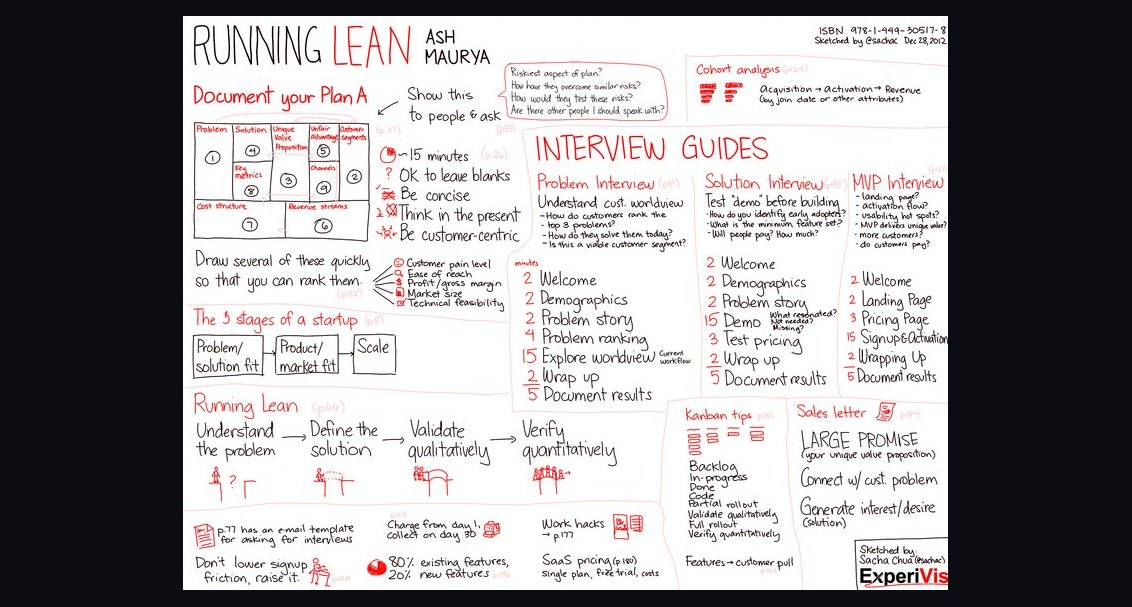 RUNNING LEAN
ASH
MAURYA
ISBN 978-1-449-30517-8
Sketched by @sachac Dec 28, 2012
Document your Plan A
Show this
to people & ask
Riskiest aspect of plan?
How have they overcome similar risks?
How would they test these risks?
Are there other people I should speak with?
(p55)
(p.27)
Problem
1
Solution
4
Key
metrics
8
Unique
Value
Proposition
3
Unfair
advantage
5
Channels
9
Customer
segments
2
Cost structure
7
Revenue streams
6
~15 minutes (p.26)
? OK to leave blanks
Be concise
Think in the present
Be customer-centric
Draw several of these quickly
so that you can rank them.
(p.52)
Customer pain level
Ease of reach
$ Profit/gross margin
Market size
Technical feasibility
The 3 stages of a startup (p8)
Problem/
solution fit
Product/
market fit
Scale
Running Lean (p.66)
Understand
the problem
Define the
solution
Validate
qualitatively
Verify
quantitatively
?
p.77 has an e-mail template
for asking for interviews
Don't lower signup
friction, raise it.
p113
Charge from day 1,
collect on day 30
80% existing features,
20% new features
Work hacks
→ p.177
SaaS pricing (p.180)
single plan, free trial, costs
Cohort analysis
Acquisition → Activation → Revenue
(by join date or other attributes)
INTERVIEW GUIDES
Problem Interview (p81)
Understand cust. worldview
- How do customers rank the
- top 3 problems?
- How do they solve them today?
- Is this a viable customer segment?
minutes
2 Welcome
2 Demographics
2 Problem story
4 Problem ranking
15 Explore worldview Current
workflow
2 Wrap up
5 Document results
Solution Interview (p95)
Test "demo" before building
-How do you identify early adopters?
-What is the minimum feature set?
-Will people pay? How much?
2 Welcome
2 Demographics
2 Problem story
15 Demo What resonated?
Not needed?
Missing?
3 Test pricing
2 Wrap up
5 Document results
MVP Interview
- landing page?
- activation flow?
- usability hot spots?
- MVP delivers unique value?
- more customers?
- do customers pay?
2 Welcome
2 Landing Page
3 Pricing Page
15 Signup & Activation
2 Wrapping Up
5 Document results
Kanban tips
Backlog
In-progress
Done
Code
Partial rollout
Validate qualitatively
Full rollout
Verify quantitatively
Features → customer pull
Sales letter
LARGE PROMISE
(your unique value proposition)
Connect w/ cust. problem
Generate interest/desire
(solution)
Sketched by:
Sacha Chua (@sachac)
ExperiVis